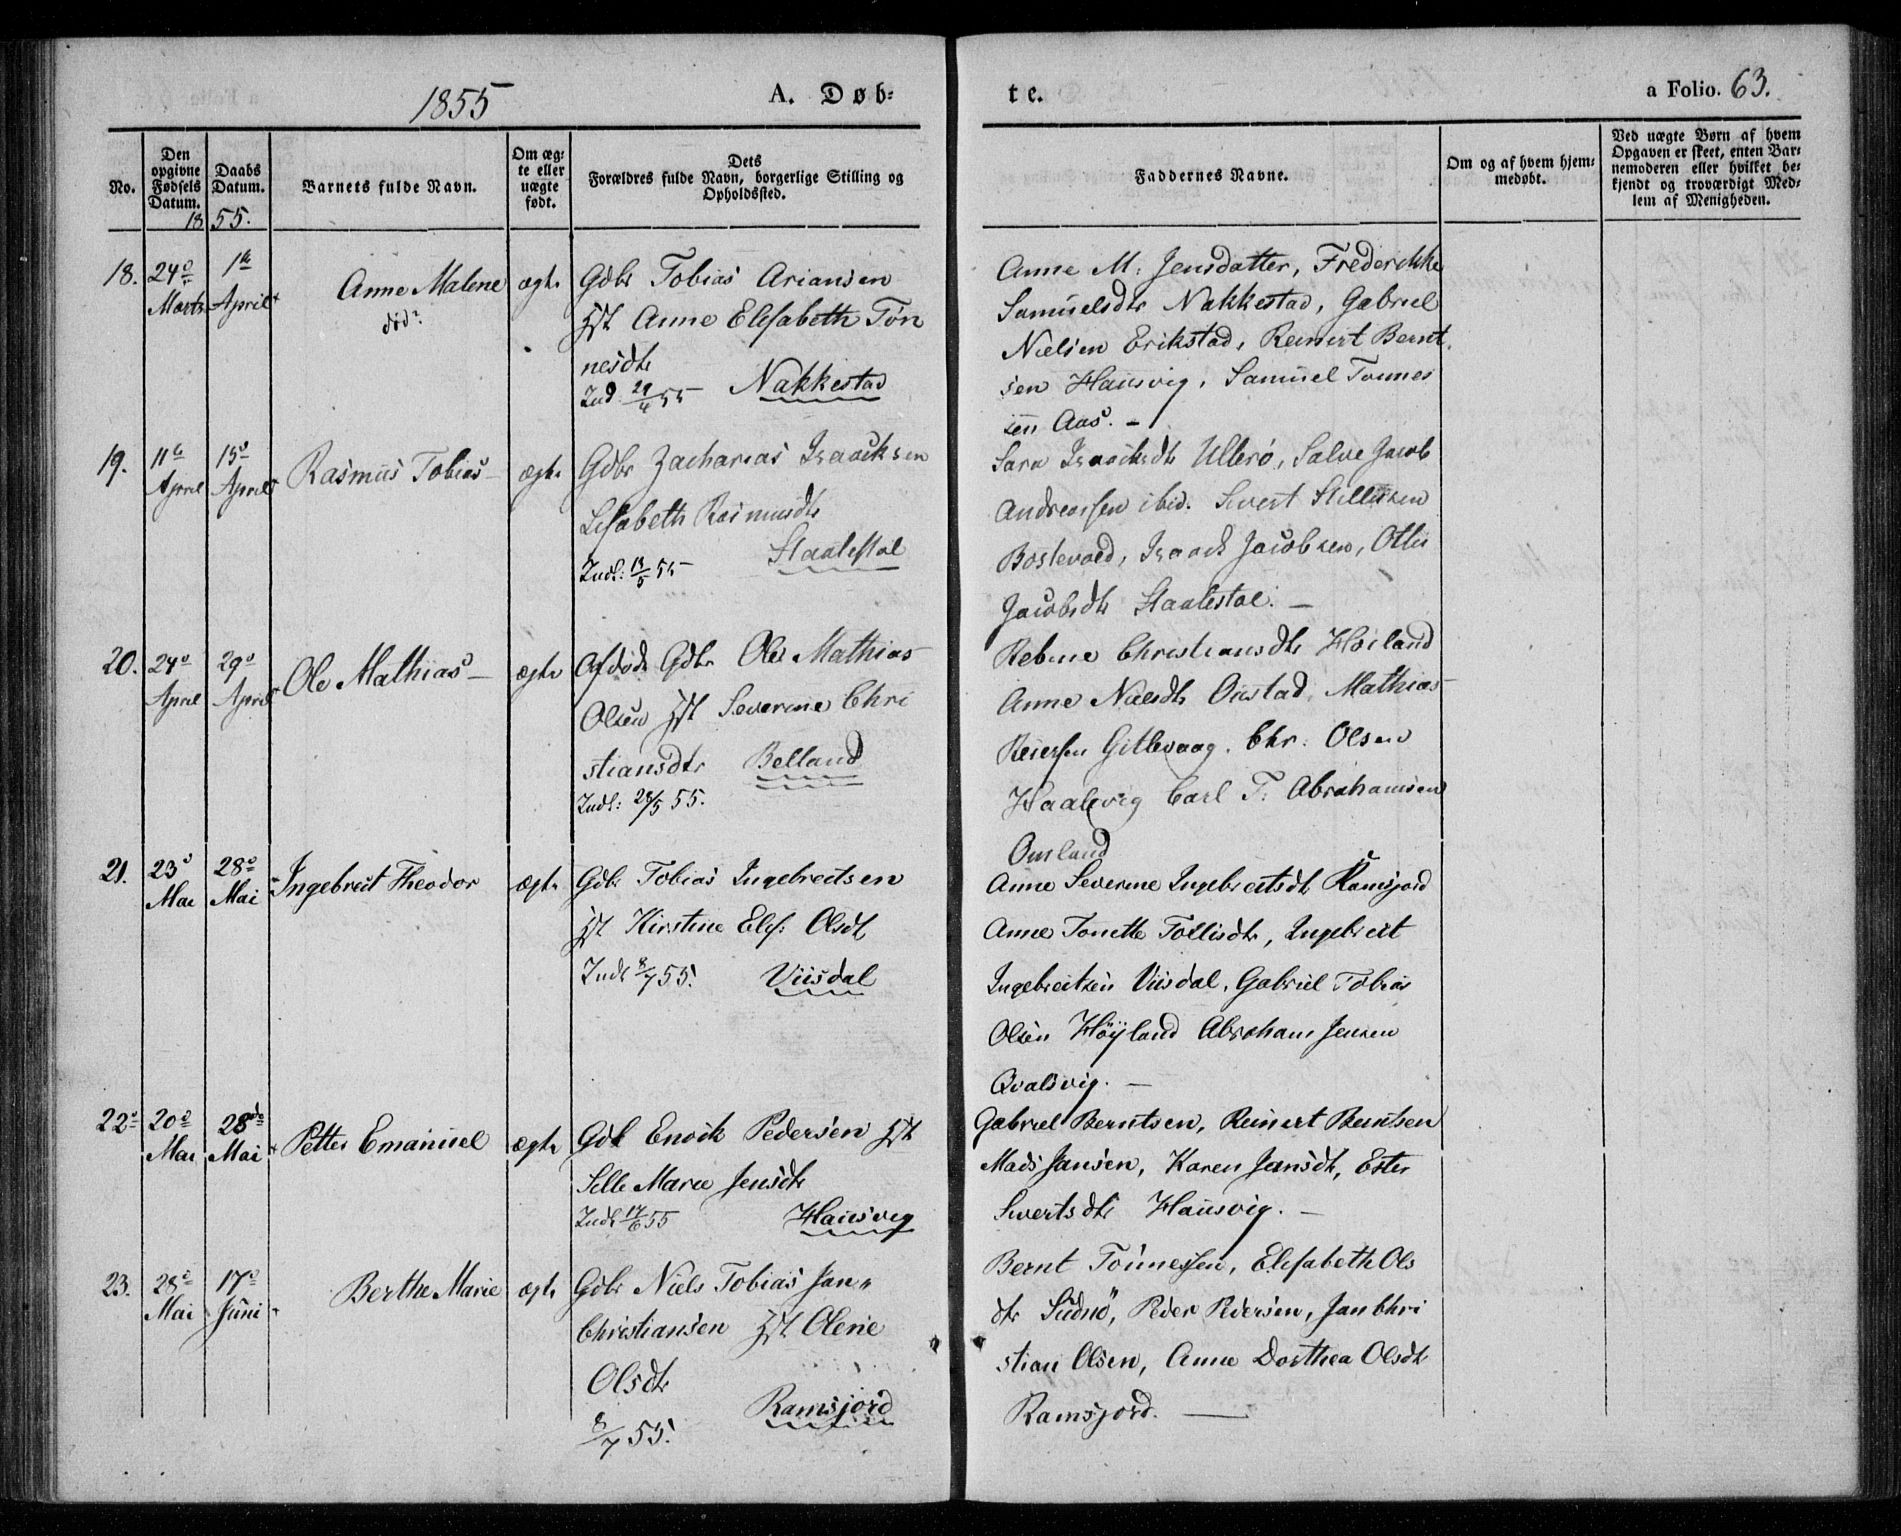 1855
A. Døb=
te.
a Folio. 63.
No.
Den opgivne Fødsels Datum.
Daabs Datum.
Barnets fulde Navn.
Om æg=
te eller
uægte
født.
Dets
Forældres fulde Navn, borgerlige Stilling og
Opholdssted.
Faddernes Navne.
Om og af hvem hjem=
medøbt.
Ved uægte Børn af hvem
Opgaven er skeet, enten Bar=
nemoderen eller hvilket be=
kjendt og troværdigt Med=
lem af Menigheden.
18 55.
18. 24d Marts
1te April
Anne Malene
død
ægte
Gdbr Tobias Ariansen
Anne Elisabeth Tøn
nesdtr
Ind 29/4 55 Nakkestad
Anne M. Jensdatter, Frederikke
Samuelsdtr Nakkestad, Gabriel
Nielsen Erikstad, Reinert Bernt
sen Hausvig, Samuel Tønnes
sen Aas. –
19. 11te April
15d April
Rasmus Tobias –
ægte
Gdbr Zacharias Isaacksen
Lisabeth Rasmusdtr
Staalestøl
Indl: 13/5 55
Sara Isaacksdtr Ullerø, Salve Jacob
Andreassen ibid. Sivert
Isaack Jacobsen, Otlie
Jacobsdtr Staalestøl. –
20. 24d April
29d April
Ole Mathias –
ægte
Afdøde Gdbr Ole Mathias
Olsen Severine Chri
stiansdtr Belland
Indl: 28/5 55.
Rebine Christiansdtr Høiland
Anne Nielsdtr Mathias
Reiersen Gitlevaag. Chr: Olsen
Haalevig Carl T. Abrahamsen
Omland
21. 23d Mai
28d Mai
Ingebreit Theodor
ægte
Gdbr Tobias Ingebreitsen
Kirstine Elis: Olsdtr
Indl 8/7 55. Viisdal
Anne Severine Ingebreitsdtr Ramsjord
Anne Tonette Tollisdtr, Ingebreit
Ingebreitsen Viisdal, Gabriel Tobias
Olsen Høÿland Abraham Jensen
Qvalsvig. –
22 20d Mai
28de Mai
Petter Emanuel
ægte
Gdb Enock Pedersen
Sille Marie Jensdtr
Indl 17/6 55 Hausvig
Gabriel Berntsen, Reinert Berntsen
Mads Jansen, Karen Jansdtr, Ester
Sivertsdtr Hausvig. –
23. 28d Mai
17d Juni
Berthe Marie
ægte
Gdbr Niels Tobias Jan
Christiansen Olene
Olsdtr
8/7 55. Ramsjord
Bernt Tönnessen, Elisabeth Ols
dtr Peder Pedersen, Jan Chri
stian Olsen, Anne Dorthea Olsdtr
Ramsjord. –